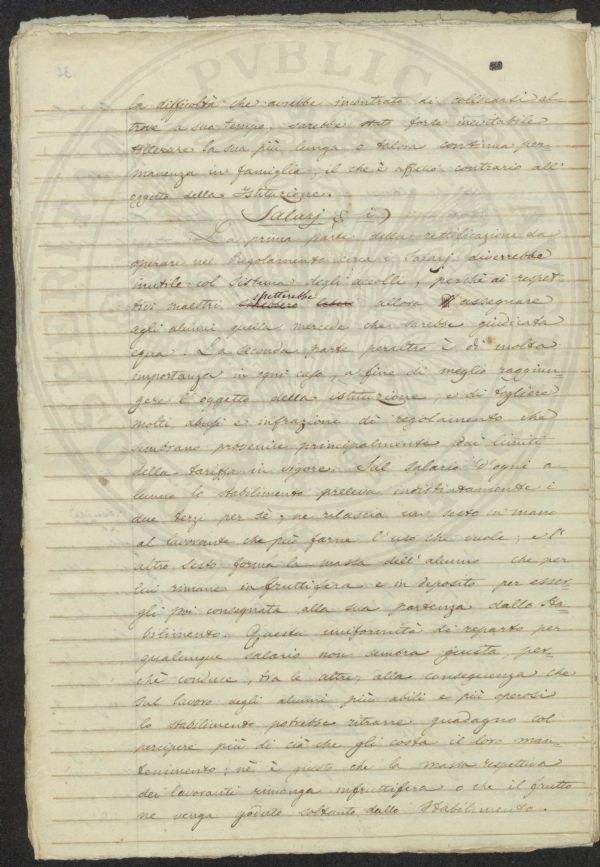 la difficoltà che avrebbe incontrato di collocarsi al-
trove a suo tempo, sarebbe stato forse inevitabile
la sua più lunga e talora continua per-
manenza in famiglia, il che è affatto contrario all'
oggetto della Istituzione.
Salarj (§ )
La prima parte della rettificazione da
operare nel Regolamento circa i Salarj diverrebbe
inutile col sistema degli accolli, perchè ai rispet-
tivi maestri spetterebbe allora assegnare
agli alunni quella mercede che sarebbe giudicata
equa. La seconda parte peraltro è di molta
importanza in ogni caso, a fine di meglio raggiun-
gere l'oggetto della istituzione, e di togliere
molti abusi e infrazione di regolamento che
sembrano provenire principalmente dai limiti
della tariffa in vigore. Sul salario d'ogni a-
lunno lo stabilimento preleva indistintamente i
due terzi per sè; ne rilascia un sesto in mano
al lavorante che può farne l'uso che vuole; e l'
altro sesto forma la massa dell'alunno che per
lui rimane infruttifera e in deposito per esser-
gli poi consegnata alla sua partenza dallo Sta-
bilimento. Questa uniformità di reparto per
qualunque salario non sembra giusta, per-
chè conduce, tra le altre, alla conseguenza che
sul lavoro degli alunni più abili e più operosi
lo stabilimento potrebbe ritrarre guadagno col
percipere più di ciò che gli costa il loro man-
tenimento; nè è giusto che la massa respettiva
dei lavoranti rimanga infruttifera o che il frutto
ne venga goduto soltanto dallo Stabilimento.
PVBLIC